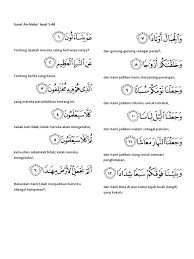 Surat An-Naba' Ayat 1-40
عَمَّ يَتَسَاءَلُونَ ١
Tentang apakah mereka saling bertanya-tanya?
عَنِ النَّبَإِ الْعَظِيمِ ٢
Tentang berita yang besar,
الَّذِي هُمْ فِيهِ مُخْتَلِفُونَ ٣
yang mereka perselisihkan tentang ini.
كَلَّا سَيَعْلَمُونَ ٤
Sekali-kali tidak; kelak mereka akan mengetahui,
ثُمَّ كَلَّا سَيَعْلَمُونَ ٥
kemudian sekali-kali tidak; kelak mereka
mengetahui.
أَلَمْ نَجْعَلِ الْأَرْضَ مِهَادًا ٦
Bukankah Kami telah menjadikan bumi itu
sebagai hamparan?,
وَالْجِبَالَ أَوْتَادًا ٧
dan gunung-gunung sebagai pasak?,
وَخَلَقْنَاكُمْ أَزْوَاجًا ٨
dan Kami jadikan kamu berpasang-pasangan,
وَجَعَلْنَا نَوْمَكُمْ سُبَاتًا ٩
dan Kami jadikan tidurmu untuk istirahat,
وَجَعَلْنَا اللَّيْلَ لِبَاسًا ١٠
dan Kami jadikan malam sebagai pakaian,
وَجَعَلْنَا النَّهَارَ مَعَاشًا ١١
dan Kami jadikan siang untuk mencari
penghidupan,
وَبَنَيْنَا فَوْقَكُمْ سَبْعًا شِدَادًا ١٢
dan Kami bina di atas kamu tujuh buah (langit)
yang kokoh,